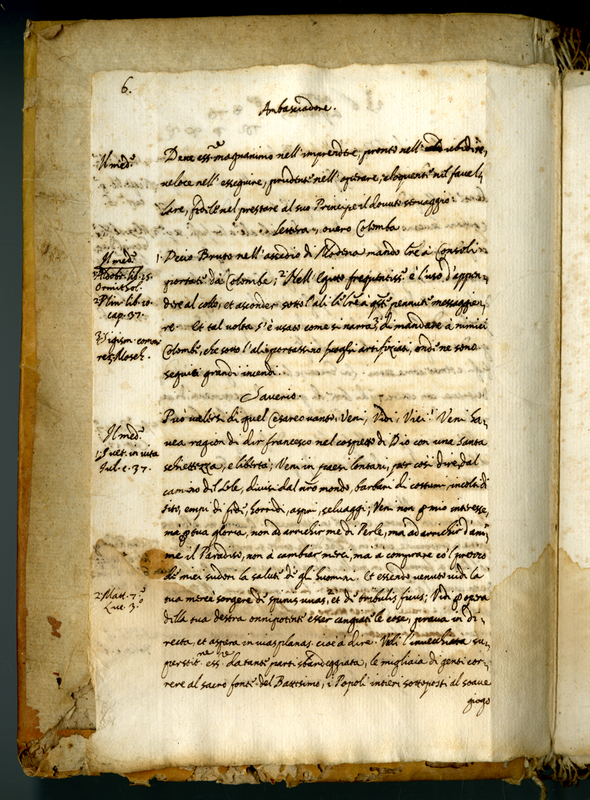 6.
Ambasciadore.
Il med.º
Deve ess.re magnanimo nell'imprendere, pronto nell' ubidire,
veloce nell'esseguire, prudente nell'operare, eloquente nel favel-
lare, fedele nel prestare al suo Principe il dovuto servaggio.
Lettera, overo Colomba
Il med.º
1. Aldobr. lib. 15.
Ornithol.
2 Plin. lib. 10.
cap. 37.
3 Sigism.
1. Decio Bruto nell'assedio di Modena mandò l're à Consoli
portate dà Colombe; 2 Nell'Egitto frequentiss.º è l'uso d'appen-
dere al collo, et asconder sotto l'ali l're a q.sti pennuti messaggie-
re. Et tal volta s'è usato come si narra, 3 di mandare à nimici
Colombi, che sotto l'ali portassino fuoghi artifiziati, onde ne sono
seguiti grandi incendi.
Saverio.
Il med.º
1. Svet. in vita
Iul. c. 37.
Può valersi di quel Cesareo vanto, Veni, Vidi, Vici. 1 Veni Sa-
vea ragion di dir Francesco nel cospetto di Dio con una Santa
schiettezza, e libertà; Veni in paesi lontani, per così dire, dal
camino del Sole, divisi dal n'ro mondo, barbari di costumi, incolti di
sito, empi di fede, horridi, aspri, selvaggi; Veni non p mio interesse,
ma p tua gloria, non ad arrichir me di Perle, ma ad arrichir d'ani-
me il Paradiso, non à cambiar merci, mà à comprare co'l prezzo
de miei sudori la salute de gli huomini. Et essendo venuto vidi la
2. Matt. 7.º
Luc. 3.º
tua mercè sorgere de spinis uvas, 2 et de tribulis ficus; Vidi p opera
della tua destra onnipotente esser cangiate le cose, prava in di-
recta, et aspera in vias planas, cioè à dire. Vidi l'invecchiata su-
perstit.ne ess.re da tante parti sbandeggiata, le migliaia di genti cor-
rere al sacro fonte del Battesimo, i Popoli intieri sottoposti al soave
giogo